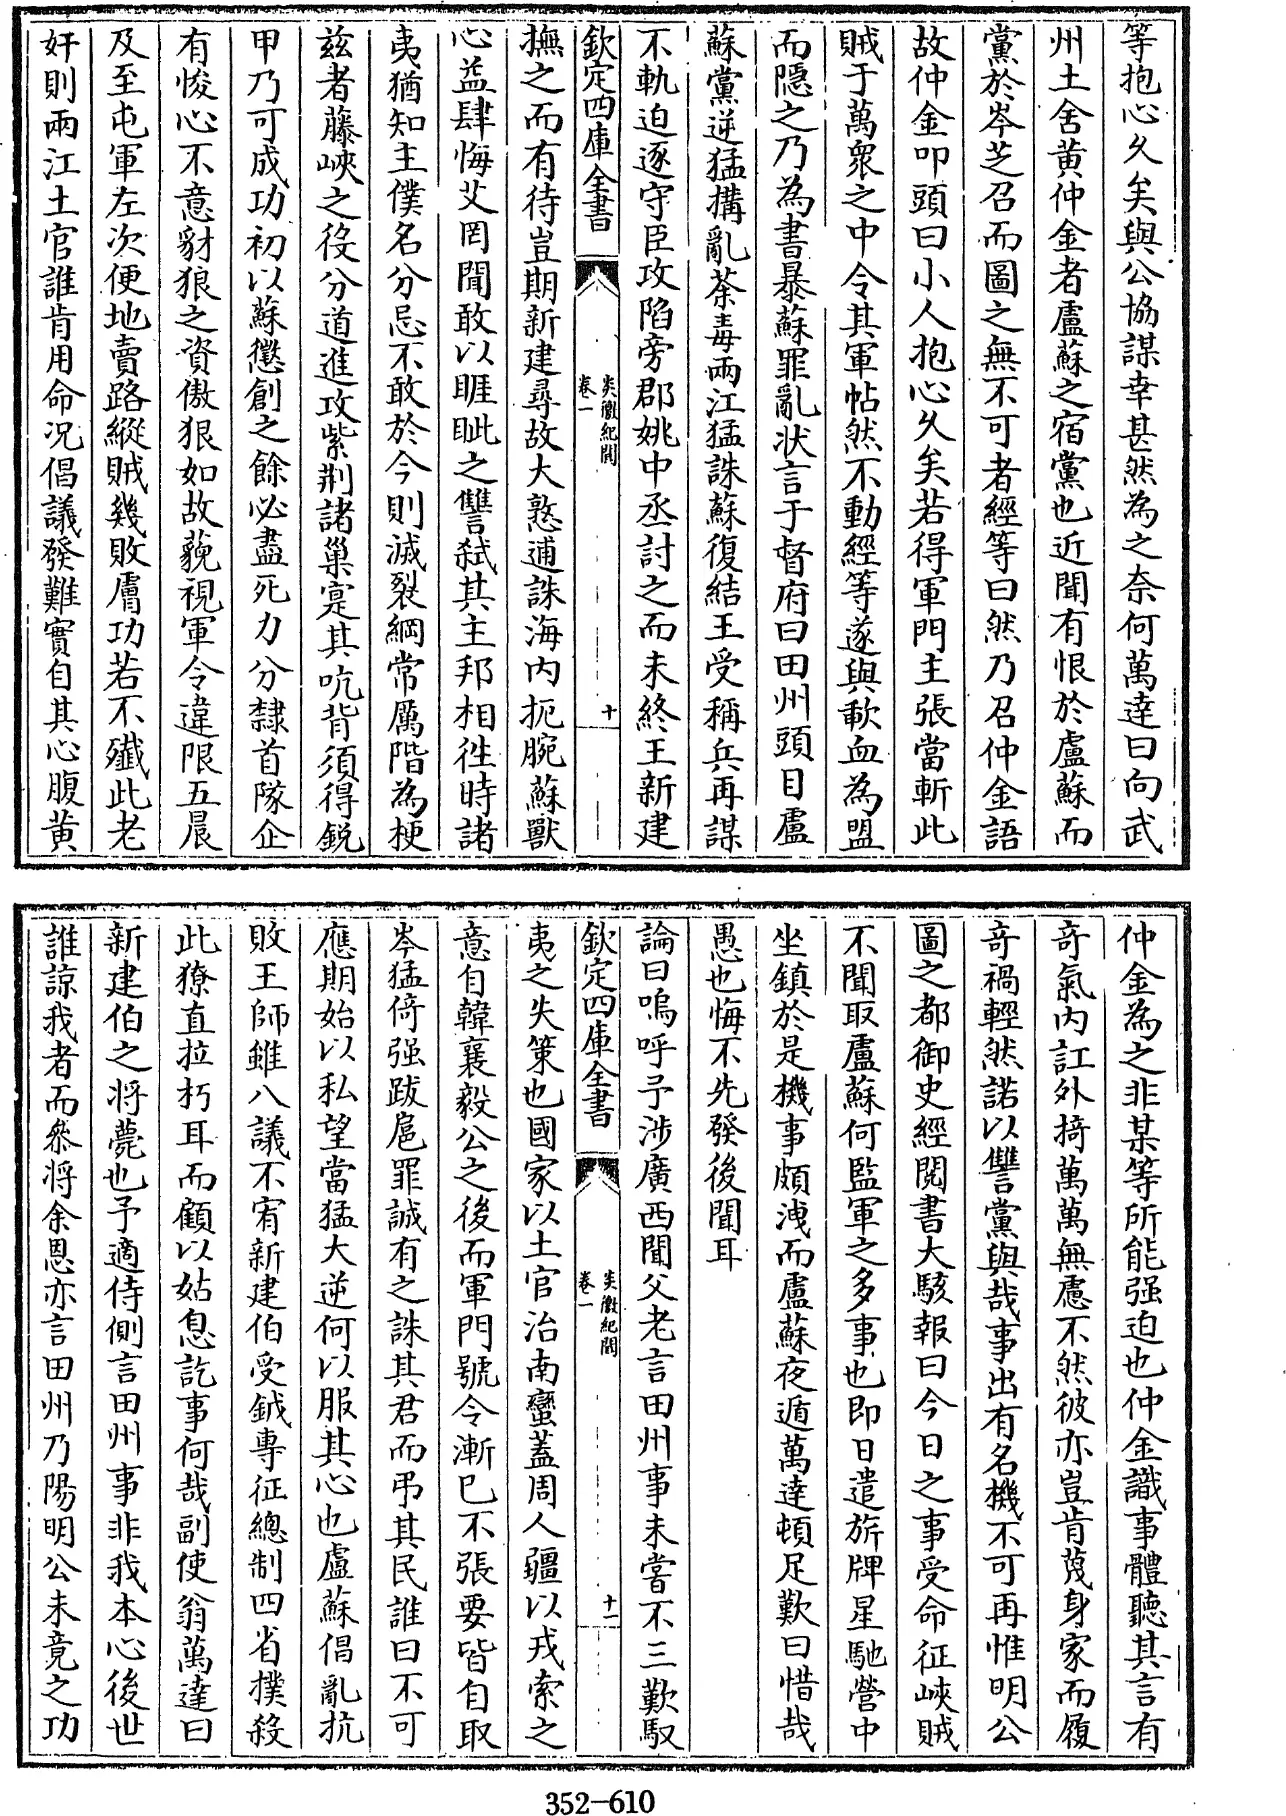 等抱心久矣與公協謀幸甚然為之奈何萬達曰向武
州土舍黄仲金者盧蘇之宿黨也近聞有恨於盧蘇而
黨於岑芝召而圖之無不可者經等曰然乃召仲金語
故仲金叩頭曰小人抱心久矣若得軍門主張當斬此
賊于萬衆之中令其軍帖然不動經等遂與歃血為盟
而隱之乃為書暴蘇罪亂状言于督府曰田州頭目盧
蘇黨逆猛搆亂荼毒兩江猛誅蘇復結王受稱兵再謀
不軌迫逐守臣攻陷旁郡姚中丞討之而未終王新建
欽定四庫全書
炎徼紀聞
卷一
十
撫之而有待豈期新建尋故大憝逋誅海内扼腕蘇獸
心益肆悔艾罔聞敢以睚眦之讐弑其主邦相徃時諸
夷猶知主僕名分忌不敢於今則滅裂綱常厲階為梗
兹者藤峽之役分道進攻紫荆諸巢寔其吭背須得鋭
甲乃可成功初以蘇懲創之餘必盡死力分隸首隊企
有悛心不意豺狼之資傲狠如故藐視軍令違限五晨
及至屯軍左次便地賣路縱賊幾敗膚功若不殲此老
奸則兩江土官誰肯用命况倡議發難實自其心腹黄
仲金為之非某等所能强迫也仲金識事體聽其言有
奇氣内訌外掎萬萬無慮不然彼亦豈肯蔑身家而履
竒禍輕然諾以讐黨與哉事出有名機不可再惟明公
圖之都御史經閱書大駭報曰今日之事受命征峽賊
不聞取盧蘇何監軍之多事也即日遣旂牌星馳營中
坐鎮於是機事頗洩而盧蘇夜遁萬達頓足歎曰惜哉
愚也悔不先發後聞耳
論曰嗚呼予涉廣西聞父老言田州事未嘗不三歎馭
欽定四庫全書
炎徼紀聞
卷一
十一
夷之失策也國家以土官治南蠻蓋周人疆以戎索之
意自韓襄毅公之後而軍門號令漸已不張要皆自取
岑猛倚强跋扈罪誠有之誅其君而弔其民誰曰不可
應期始以私望當猛大逆何以服其心也盧蘇倡亂抗
敗王師雖八議不宥新建伯受鉞專征總制四省撲殺
此獠直拉朽耳而顧以姑息訖事何哉副使翁萬達曰
新建伯之将薨也予適侍側言田州事非我本心後世
誰諒我者而叅将余恩亦言田州乃陽明公未竟之功
352-610